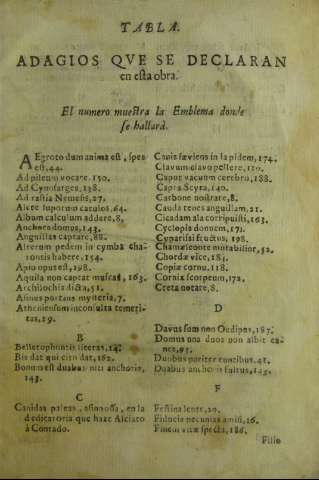 TABLA.
ADAGIOS QVE SE DECLARAN
en esta obra.
El numero muestra la Emblema donde
se hallarà.
AEgroto dum anima est, spes
est, 44.
Ad pileum vocare. 150.
Ad Cynosarges, 138.
Ad rastia Nemesis, 27.
Alere luporum catulos, 64.
Album calculum addere, 8,
Anchenodomus, 143.
Anguillas captare, 88.
Alterum pedem in cymba cha-
rontis habere, 154.
Apio opus est, 198.
Aquila non captat muscas, 163.
Archilochia dicta, 51.
Asinus portans mysteria, 7.
Atheniensium inconsulta temeri-
tas, 19.
B
Bellerophontis literas, 14.
Bis dat qui cito dat, 162.
Bonum est duabus niti anchoris,
143.
C
Canidas paleas, asino ossa, en la
dedicatoria que haze Alciato
à Contado.
Canis sæviens in lapidem, 174.
Clavum clavo pellere, 110.
Caput vacuum cerebro, 188.
Capra Scyra, 140.
Carbone nostrare, 8.
Cauda tenes anguillam, 21.
Cicadam ala corripuisti, 163.
Cyclopis donum, 171.
Cyparissi fructus, 198.
Chamæleonte mutabilior, 52.
Chordæ vice, 184.
Copiæ cornu, 118.
Cornix scorpeum, 172,
Creta notare, 8.
D
Davus sum non Oedipus, 187.
Domus una duos non albit ca-
nes, 93.
Duobus pariter euntibus, 41.
Duabus anchoris fultus, 143.
F
Festina lente, 20.
Fiducia pecunias amisi, 16.
Finem vitæ specta, 186.
Filio